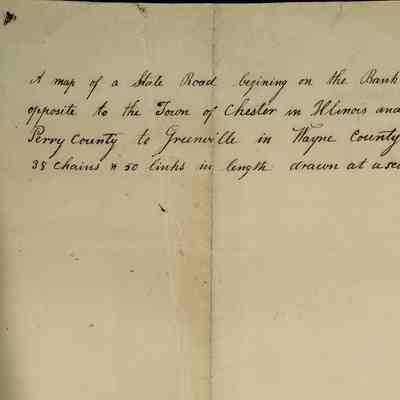 A map of a State Road begining on the Bank
opposite to the Town of Chester in Illinois and
Perry County to Greenville in Wayne County
38 Chains & 50 links in length drawn at a sca